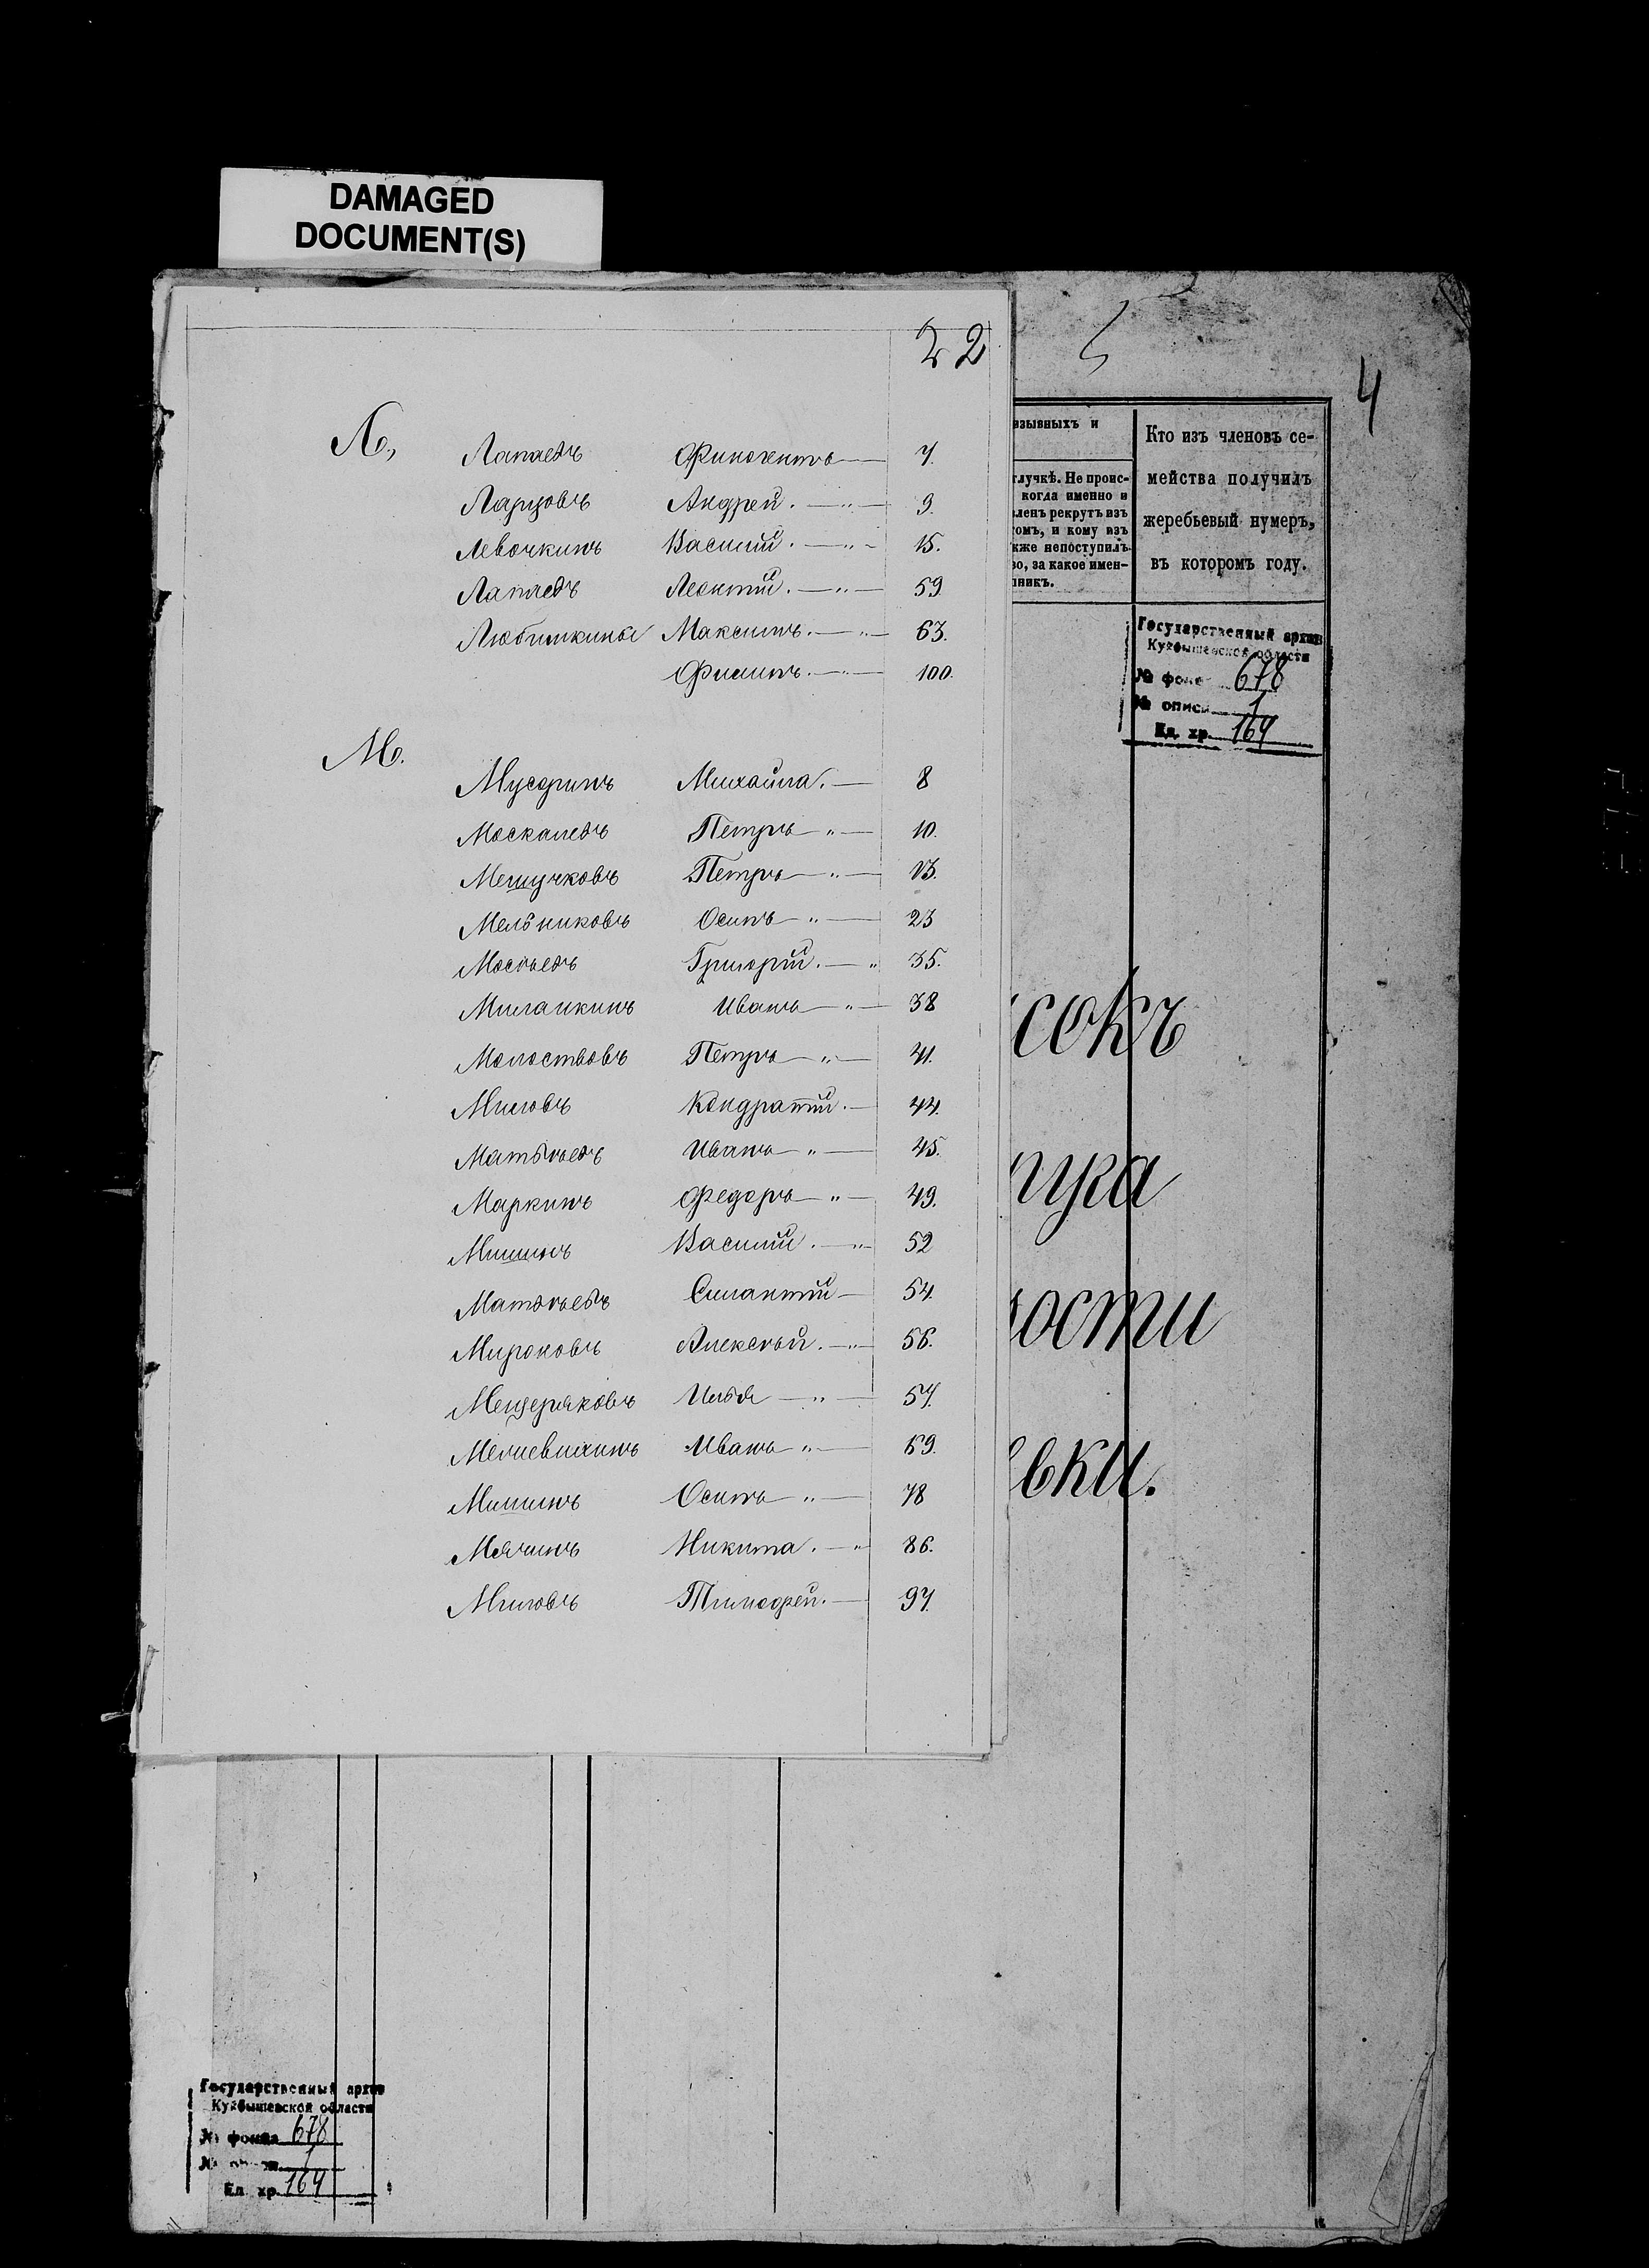 DAMAGED
DOCUMENT(S)
22
4
Л.,
Лапаевъ Финогентъ — 7.
Ларцовъ Андрей. — „ — 9.
Левочкинъ Василій. — „ — 15.
Лапаевъ Леонтій. — „ — 59.
Любишкины Максимъ. — „ — 63.
Филипъ. — „ — 100.
М.
Мусоринъ Михайла. — 8
Москалевъ Петръ — „ — 10.
Мешучковъ Петръ — „ — 13.
Мельниковъ Осипъ — „ — 23
Мосѣевъ Григорій. — „ 35.
Миланкинъ Иванъ — „ — 38
Молостовъ Петръ — „ — 41.
Миловъ Кондратій. — 44.
Матвѣевъ Иванъ — „ — 45.
Маркинъ Федоръ — „ — 49.
Мишинъ Василій. — „ — 52
Матвѣевъ Силантій — 54.
Мироновъ Алексѣй. — „ — 56.
Мещеряковъ Илья — „ — 57.
Иванъ — „ — 69.
Мишинъ Осипъ — „ — 78
Мячинъ Никита. — „ 86.
Миловъ Тимофей. — 97.
зывныхъ и
тлучкѣ. Не проис-
когда именно и
ленъ рекрутъ изъ
омъ, и кому изъ
кже непоступилъ
во, за какое имен-
никъ.
Кто изъ членовъ се-
мейства получилъ
жеребьевый нумеръ,
въ которомъ году.
Государственный архив
Куйбышевской области
№ фонда 678
№ описи 1
Ед. хр. 164
сокъ
ости
вки.
Государственный архив
Куйбышевской области
№ фонда 678
Ед. хр. 164